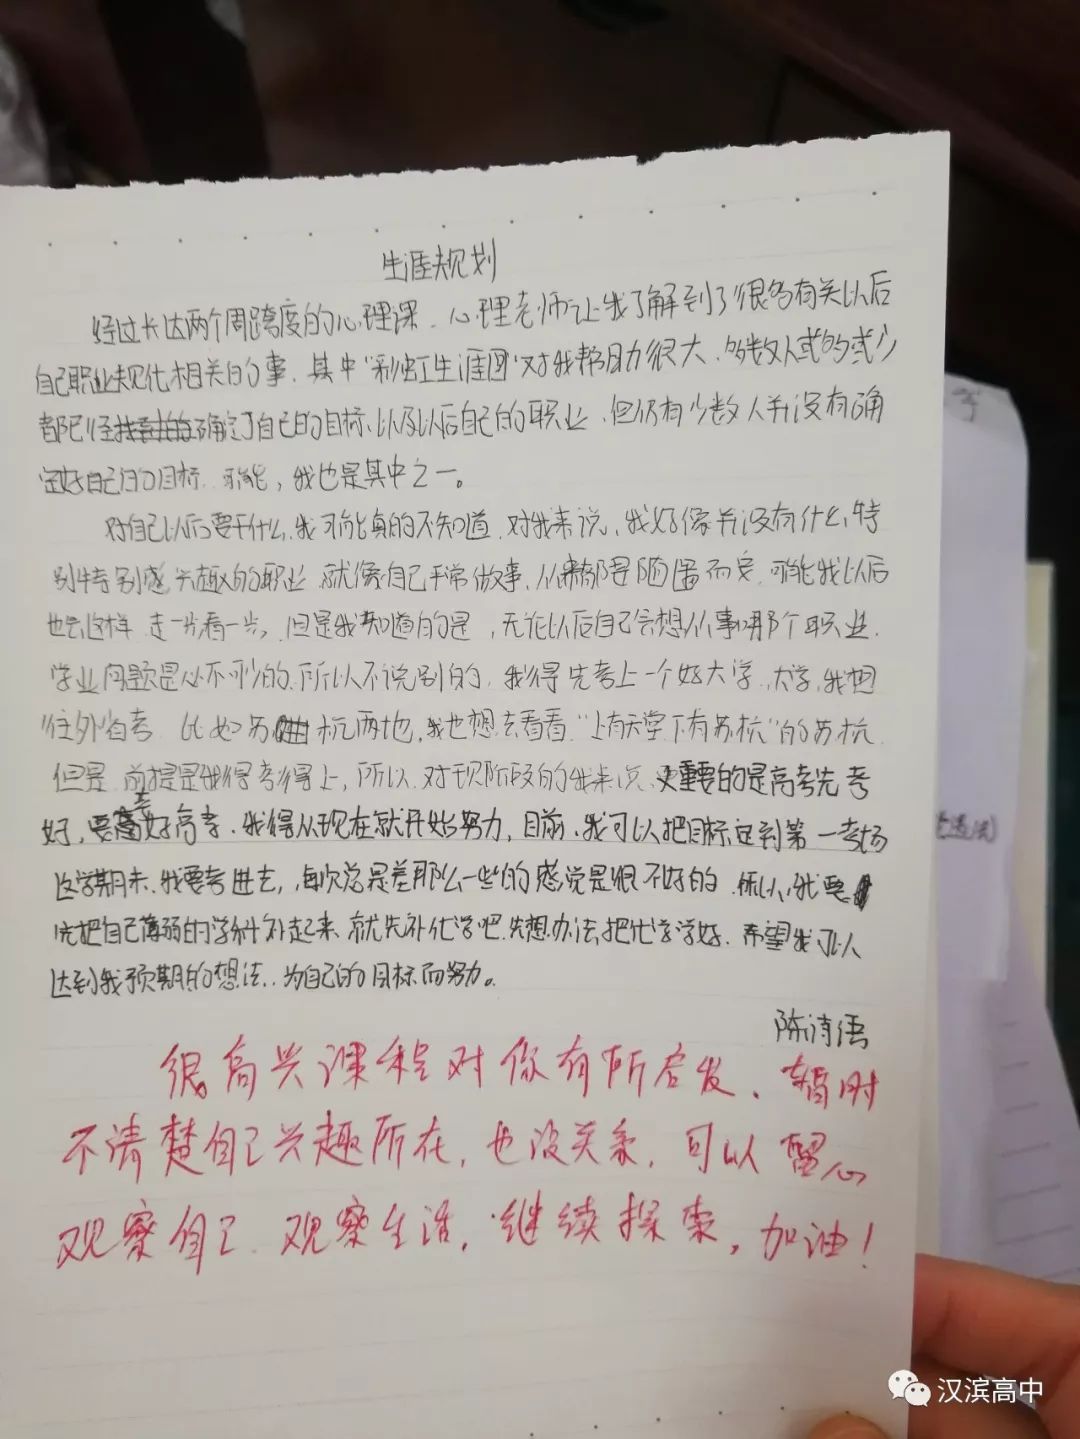 生涯规划
经过长达两个周跨度的心理课，心理老师让我了解到了很多有关以后
自己职业规化相关的事，其中"彩虹生涯图"对我帮助很大，多数人或多或少
都已经确定了自己的目标，以及以后自己的职业，但仍有少数人并没有确
定好自己的目标，可能，我也是其中之一。
对自己以后要干什么，我可能真的不知道，对我来说，我好像并没有什么特
别特别感兴趣的职业，就像自己平常做事，从来都是随遇而安，可能我以后
也会这样，走一步看一步，但是我知道的是，无论以后自己会想从事哪个职业，
学业问题是必不可少的，所以不说别的，我得先考上一个好大学，大学，我想
往外省考，比如苏杭两地，我也想去看看"上有天堂下有苏杭"的苏杭，
但是，前提是我得考得上，所以，对现阶段的我来说，更重要的是高考先考
好，要考好高考，我得从现在就开始努力，目前，我可以把目标定到第一考场
这学期末，我要考进去，每次总是差那么一些的感觉是很不好的，所以，我要
先把自己薄弱的学科补起来，就先补化学吧，先想办法把化学学好，希望我可以
达到我预期的想法，为自己的目标而努力。
陈诗语
很高兴课程对你有所启发，暂时
不清楚自己兴趣所在，也没关系，可以留心
观察自己，观察生活，继续探索，加油！
汉滨高中